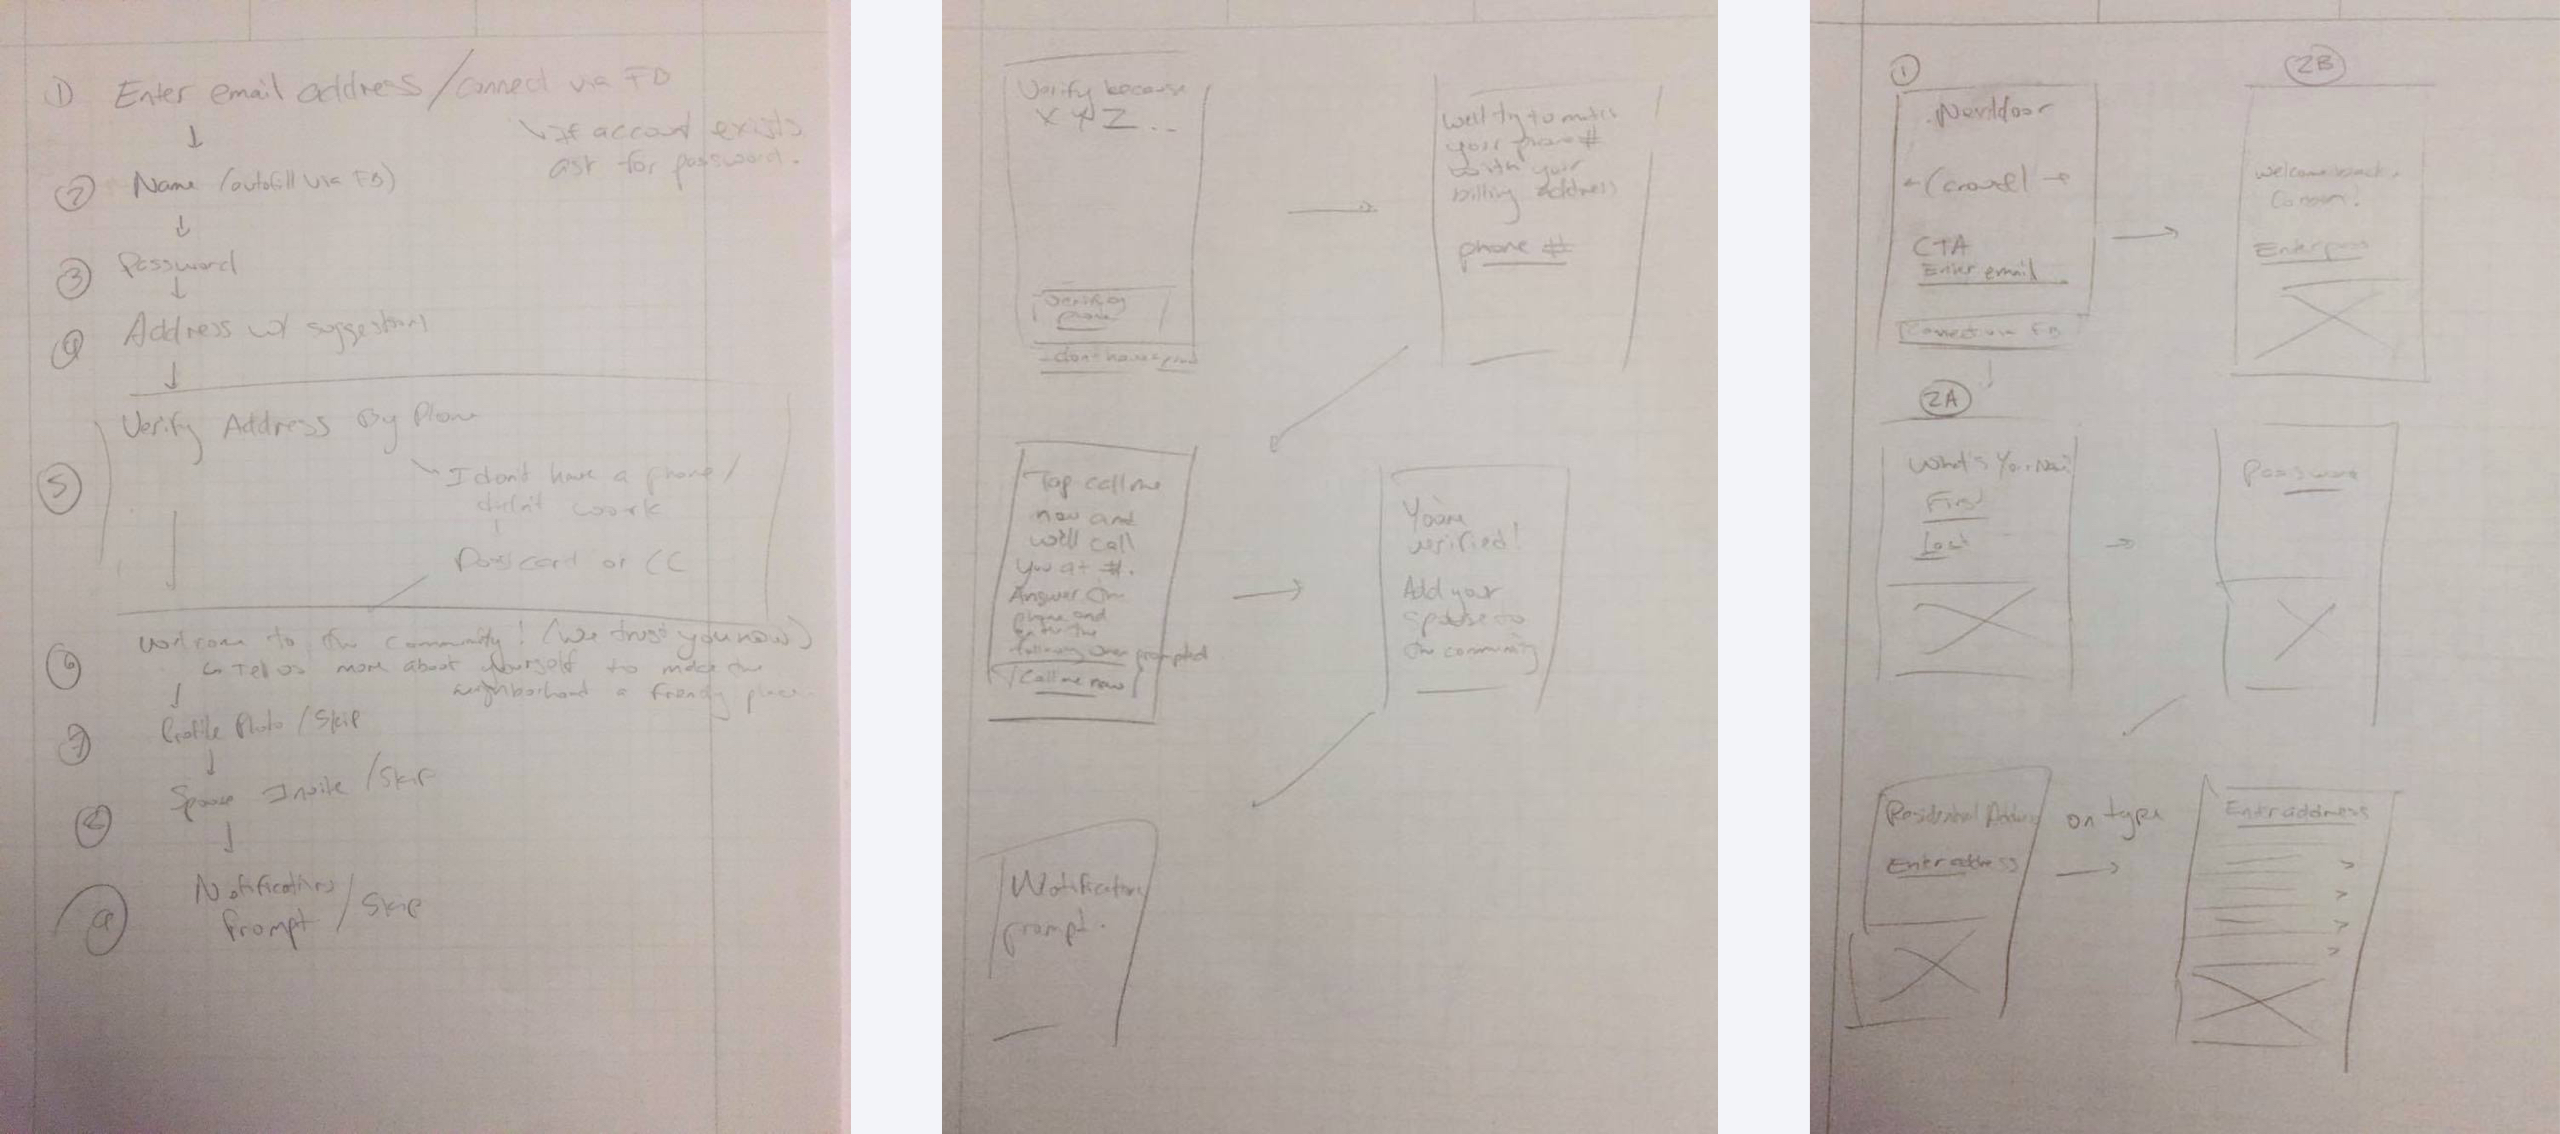 ① Enter email address / connect via FB
↳ If account exists
ask for password.
② Name (autofill via FB)
③ Password
④ Address w/ suggestions
Verify Address By Phone
⑤
I don't have a phone /
didn't work
Postcard or CC
⑥ Welcome to the community! (We trust you now)
↳ Tell us more about yourself to make the
neighborhood a friendly place
⑦ Profile Photo / Skip
⑧ Spouse Invite / Skip
⑨ Notifications
Prompt / Skip
Verify because
X Y Z ...
Verify by
phone
I don't have a phone
We'll try to match
your phone #
with your
billing address
phone #
Tap call me
now and
we'll call
you at #.
Answer the
phone and
enter the
following when prompted
Call me now
You're
verified!
Add your
spouse to
the community
Notifications
prompt.
①
Nextdoor
← (carousel) →
CTA
Enter email
Connect via FB
2B
Welcome back,
Enter pass
2A
What's Your Name
First
Last
Password
Residential Address
Enter address
on type
Enter address